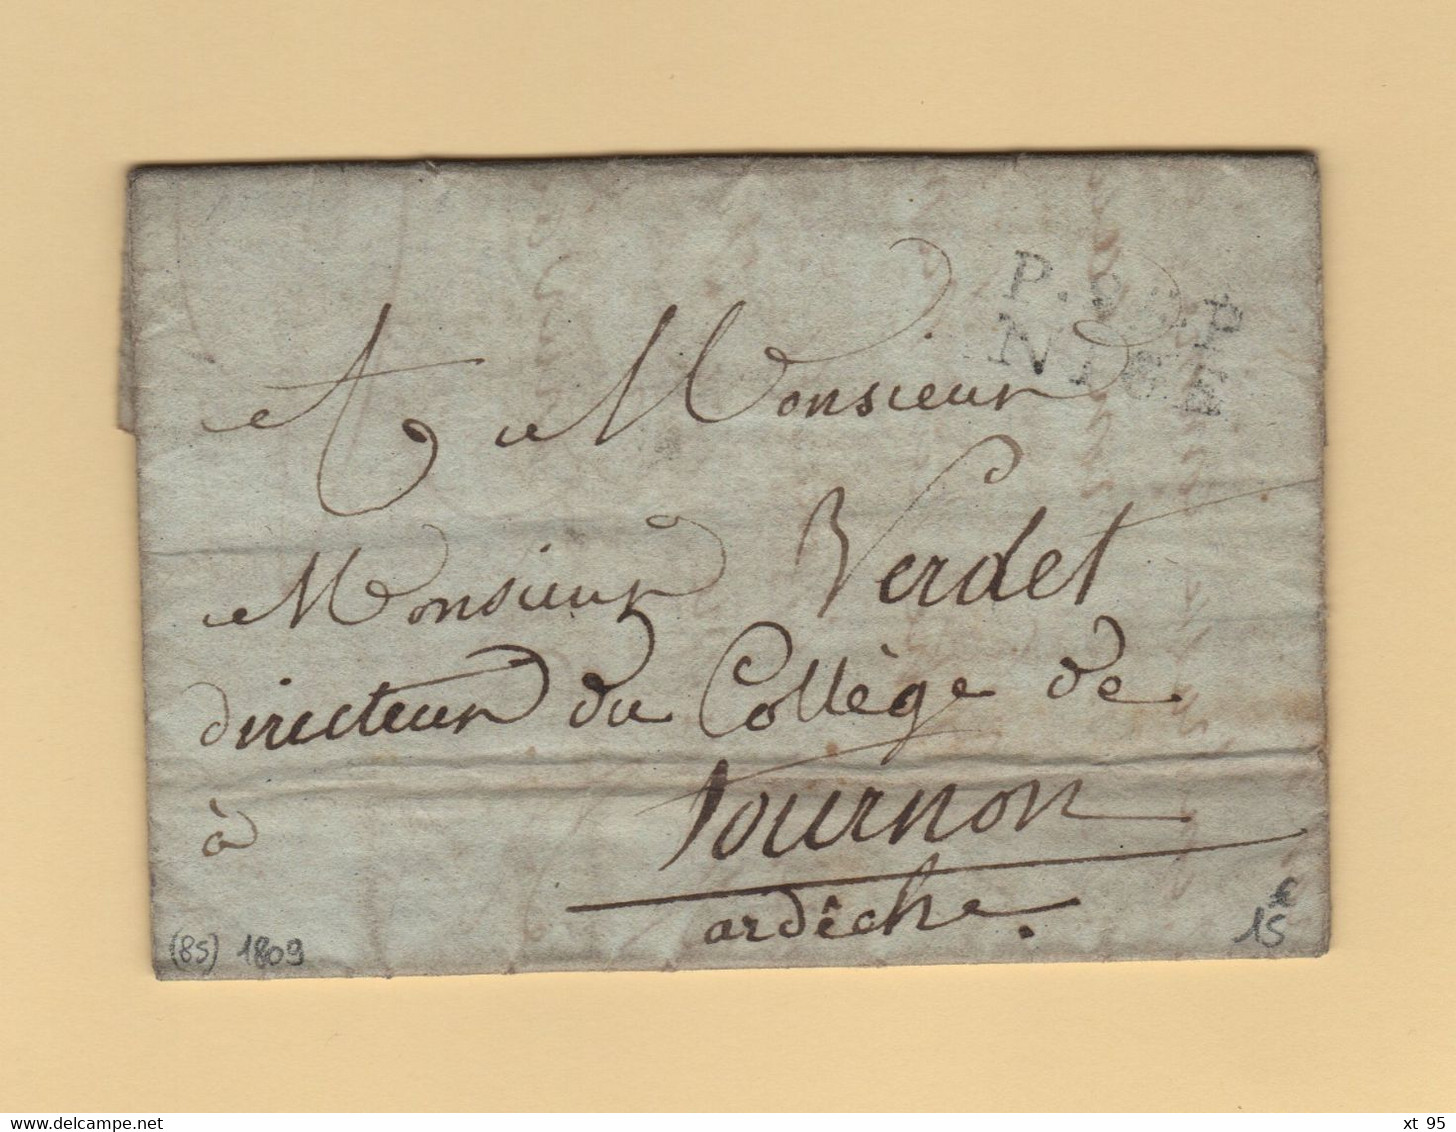 P. 85. P
NICE
A Monsieur
Monsieur Verdet
directeur du Collège de
à Tournon
ardêche.
(85) 1809
15
delcampe.net
xt 95